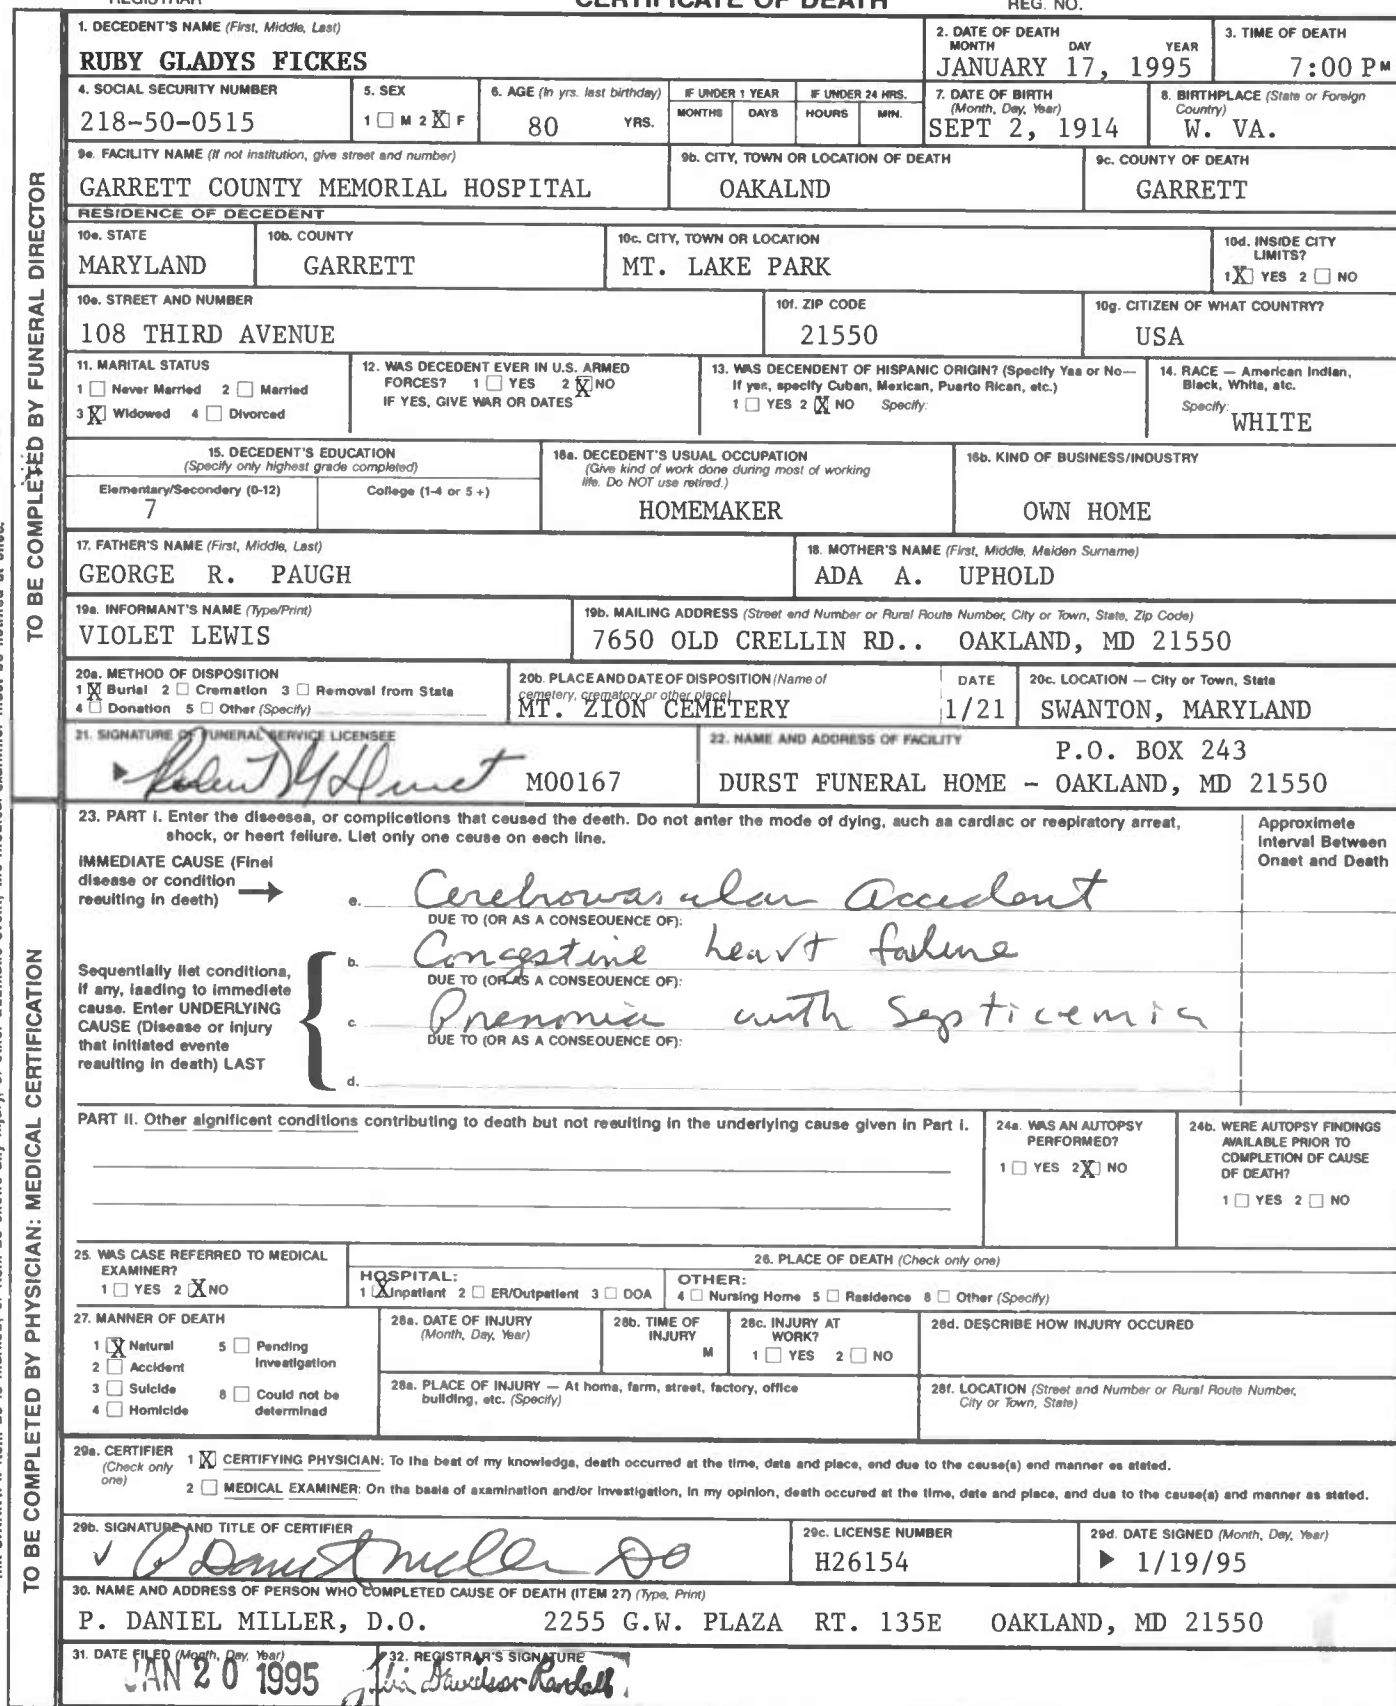 REGISTRAR CERTIFICATE OF DEATH REG. NO.
1. DECEDENT'S NAME (First, Middle, Last)
RUBY GLADYS FICKES
2. DATE OF DEATH
MONTH DAY YEAR
JANUARY 17, 1995
3. TIME OF DEATH
7:00 PM
4. SOCIAL SECURITY NUMBER
218-50-0515
5. SEX
1 ☐ M 2 ☒ F
6. AGE (In yrs. last birthday)
80 YRS.
IF UNDER 1 YEAR
MONTHS DAYS
IF UNDER 24 HRS.
HOURS MIN.
7. DATE OF BIRTH
(Month, Day, Year)
SEPT 2, 1914
8. BIRTHPLACE (State or Foreign
Country)
W. VA.
9a. FACILITY NAME (If not institution, give street and number)
GARRETT COUNTY MEMORIAL HOSPITAL
9b. CITY, TOWN OR LOCATION OF DEATH
OAKALND
9c. COUNTY OF DEATH
GARRETT
RESIDENCE OF DECEDENT
10a. STATE
MARYLAND
10b. COUNTY
GARRETT
10c. CITY, TOWN OR LOCATION
MT. LAKE PARK
10d. INSIDE CITY
LIMITS?
1 ☒ YES 2 ☐ NO
10e. STREET AND NUMBER
108 THIRD AVENUE
10f. ZIP CODE
21550
10g. CITIZEN OF WHAT COUNTRY?
USA
11. MARITAL STATUS
1 ☐ Never Married 2 ☐ Married
3 ☒ Widowed 4 ☐ Divorced
12. WAS DECEDENT EVER IN U.S. ARMED
FORCES? 1 ☐ YES 2 ☒ NO
IF YES, GIVE WAR OR DATES
13. WAS DECENDENT OF HISPANIC ORIGIN? (Specify Yes or No—
If yes, specify Cuban, Mexican, Puerto Rican, etc.)
1 ☐ YES 2 ☒ NO Specify:
14. RACE — American Indian,
Black, White, etc.
Specify:
WHITE
15. DECEDENT'S EDUCATION
(Specify only highest grade completed)
Elementary/Secondary (0-12) College (1-4 or 5 +)
7
16a. DECEDENT'S USUAL OCCUPATION
(Give kind of work done during most of working
life. Do NOT use retired.)
HOMEMAKER
16b. KIND OF BUSINESS/INDUSTRY
OWN HOME
17. FATHER'S NAME (First, Middle, Last)
GEORGE R. PAUGH
18. MOTHER'S NAME (First, Middle, Maiden Surname)
ADA A. UPHOLD
19a. INFORMANT'S NAME (Type/Print)
VIOLET LEWIS
19b. MAILING ADDRESS (Street and Number or Rural Route Number, City or Town, State, Zip Code)
7650 OLD CRELLIN RD.. OAKLAND, MD 21550
20a. METHOD OF DISPOSITION
1 ☒ Burial 2 ☐ Cremation 3 ☐ Removal from State
4 ☐ Donation 5 ☐ Other (Specify)
20b. PLACE AND DATE OF DISPOSITION (Name of
cemetery, crematory or other place)
MT. ZION CEMETERY
DATE
1/21
20c. LOCATION — City or Town, State
SWANTON, MARYLAND
21. SIGNATURE OF FUNERAL SERVICE LICENSEE
M00167
22. NAME AND ADDRESS OF FACILITY
P.O. BOX 243
DURST FUNERAL HOME - OAKLAND, MD 21550
TO BE COMPLETED BY FUNERAL DIRECTOR
23. PART I. Enter the diseases, or complications that caused the death. Do not enter the mode of dying, such as cardiac or respiratory arrest,
shock, or heart failure. List only one cause on each line.
Approximate
Interval Between
Onset and Death
IMMEDIATE CAUSE (Final
disease or condition
resulting in death)
a. Cerebrovasular accident
DUE TO (OR AS A CONSEQUENCE OF):
b. Congestive heart failure
DUE TO (OR AS A CONSEQUENCE OF):
c. Pnenonia with Septicemia
DUE TO (OR AS A CONSEQUENCE OF):
d.
Sequentially list conditions,
if any, leading to immediate
cause. Enter UNDERLYING
CAUSE (Disease or injury
that initiated events
resulting in death) LAST
PART II. Other significant conditions contributing to death but not resulting in the underlying cause given in Part I.
24a. WAS AN AUTOPSY
PERFORMED?
1 ☐ YES 2 ☒ NO
24b. WERE AUTOPSY FINDINGS
AVAILABLE PRIOR TO
COMPLETION OF CAUSE
OF DEATH?
1 ☐ YES 2 ☐ NO
25. WAS CASE REFERRED TO MEDICAL
EXAMINER?
1 ☐ YES 2 ☒ NO
26. PLACE OF DEATH (Check only one)
HOSPITAL:
1 ☒ Inpatient 2 ☐ ER/Outpatient 3 ☐ DOA
OTHER:
4 ☐ Nursing Home 5 ☐ Residence 6 ☐ Other (Specify)
27. MANNER OF DEATH
1 ☒ Natural 5 ☐ Pending
Investigation
2 ☐ Accident
3 ☐ Suicide 6 ☐ Could not be
determined
4 ☐ Homicide
28a. DATE OF INJURY
(Month, Day, Year)
28b. TIME OF
INJURY
M
28c. INJURY AT
WORK?
1 ☐ YES 2 ☐ NO
28d. DESCRIBE HOW INJURY OCCURED
28e. PLACE OF INJURY — At home, farm, street, factory, office
building, etc. (Specify)
28f. LOCATION (Street and Number or Rural Route Number,
City or Town, State)
29a. CERTIFIER
(Check only
one)
1 ☒ CERTIFYING PHYSICIAN: To the best of my knowledge, death occurred at the time, date and place, and due to the cause(s) and manner as stated.
2 ☐ MEDICAL EXAMINER: On the basis of examination and/or investigation, in my opinion, death occured at the time, date and place, and due to the cause(s) and manner as stated.
29b. SIGNATURE AND TITLE OF CERTIFIER
P Daniel Miller DO
29c. LICENSE NUMBER
H26154
29d. DATE SIGNED (Month, Day, Year)
1/19/95
30. NAME AND ADDRESS OF PERSON WHO COMPLETED CAUSE OF DEATH (ITEM 27) (Type, Print)
P. DANIEL MILLER, D.O. 2255 G.W. PLAZA RT. 135E OAKLAND, MD 21550
31. DATE FILED (Month, Day, Year)
JAN 20 1995
32. REGISTRAR'S SIGNATURE
Julia Davidson-Randall
TO BE COMPLETED BY PHYSICIAN: MEDICAL CERTIFICATION